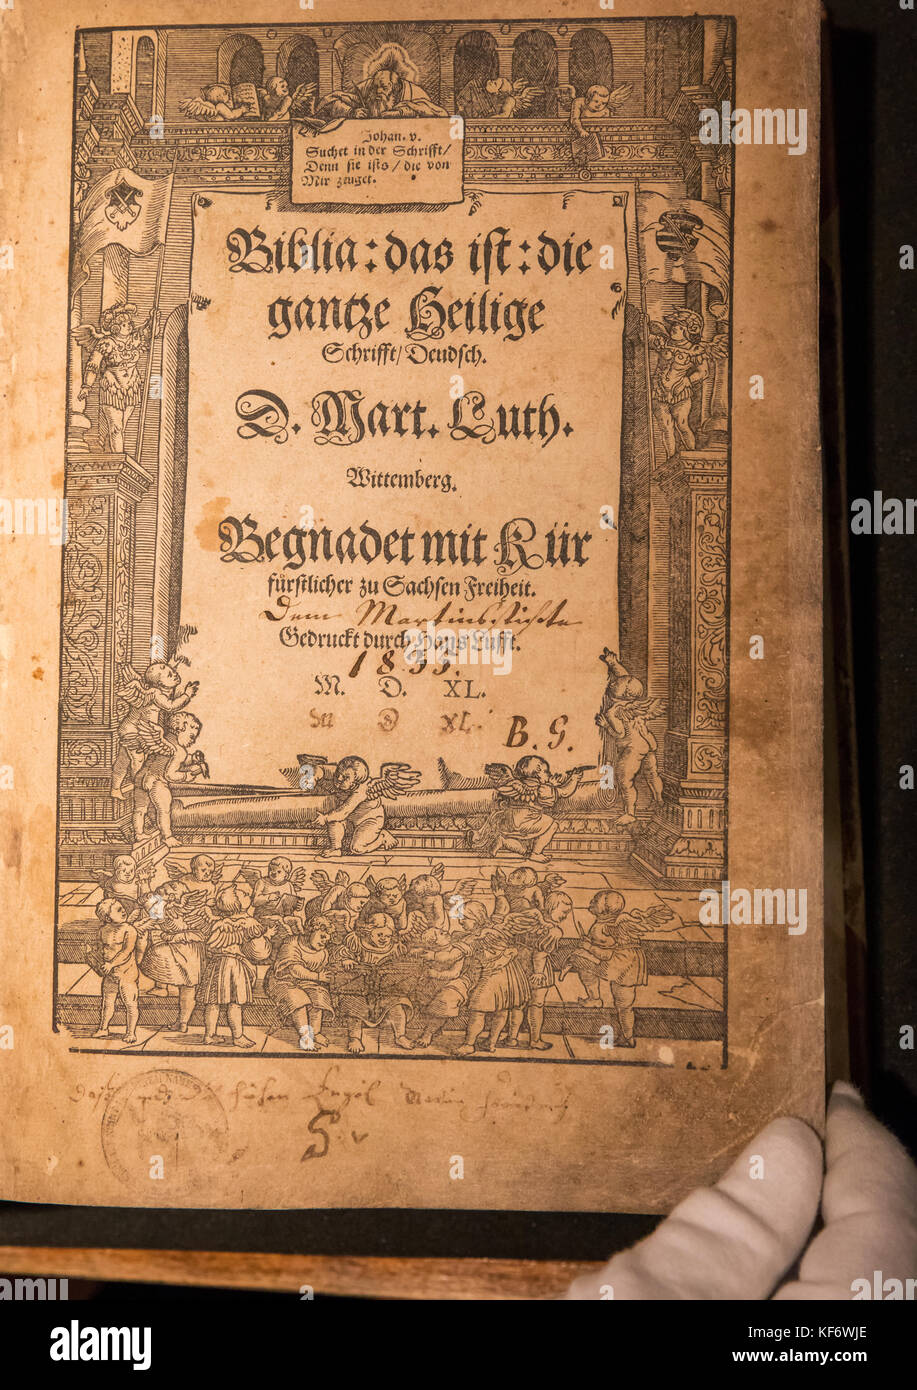 Johan. v.
Suchet in der Schrifft/
Denn sie ists/die von
Mir zeuget.
Biblia: das ist: die
gantze Heilige
Schrifft/Deudsch.
D. Mart. Luth.
Wittemberg.
Begnadet mit Kür
fürstlicher zu Sachsen Freiheit.
Dem Martinsstifte
Gedruckt durch Hans Lufft.
1833.
M. D. XL.
M D XL.
B. G.
alamy
Image ID: KF6WJE
www.alamy.com